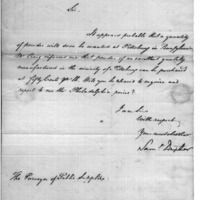 Sir,
It appears probable that a quantity
of powder will soon be wanted at Pittsburg in Pennsylvania
Mr Craig informs me that powder of an excellent quality
manufactured in the vicinity of Pittsburg can be purchased
at fifty Cents Will you be pleased to enquire and
report to me the Philadelphia price?
I am Sir
With respect
Your most obedient
The Purveyor of Public Supplies